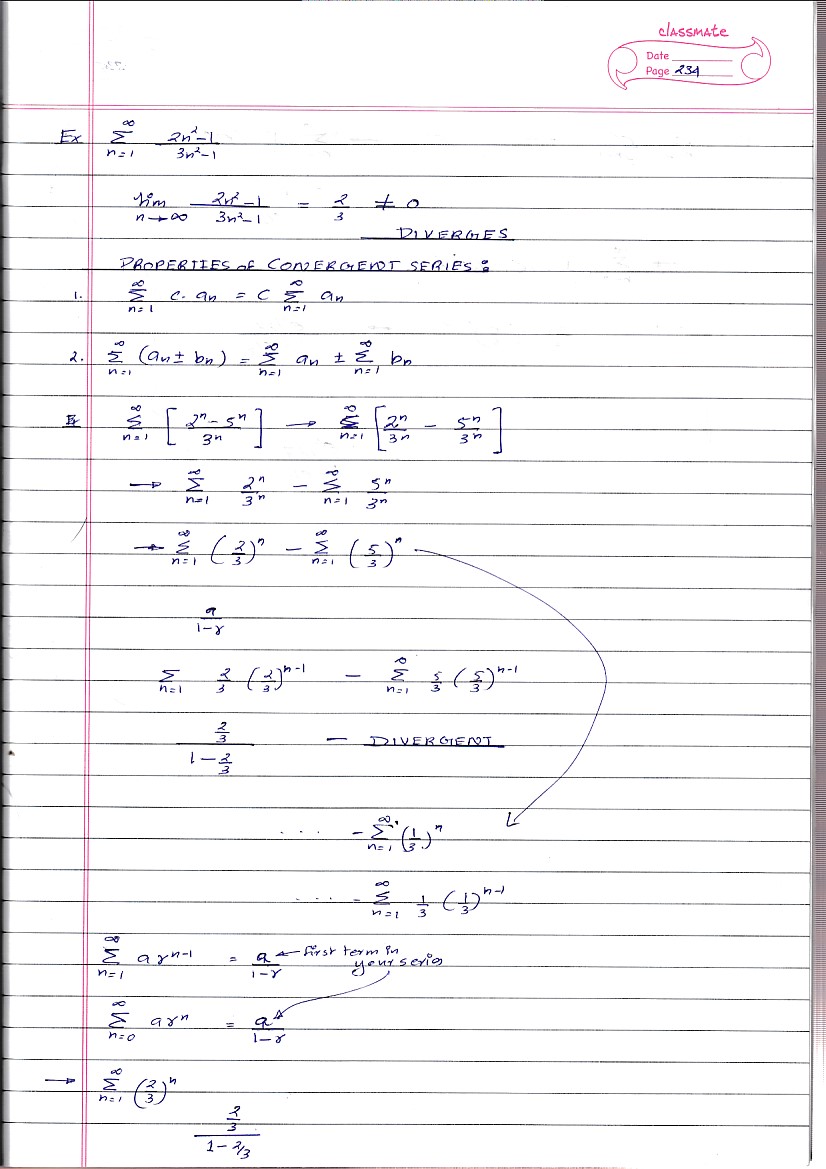 classmate
Date
Page 234
Ex ∞ Σ n=1 (2n²-1)/(3n²-1)
lim n→∞ (2n²-1)/(3n²-1) = 2/3 ≠ 0
DIVERGES
PROPERTIES OF CONVERGENT SERIES:
1. ∞ Σ n=1 c. an = C ∞ Σ n=1 an
2. ∞ Σ n=1 (an ± bn) = ∞ Σ n=1 an ± ∞ Σ n=1 bn
Ex ∞ Σ n=1 [(2ⁿ-5ⁿ)/3ⁿ] → ∞ Σ n=1 [2ⁿ/3ⁿ - 5ⁿ/3ⁿ]
→ ∞ Σ n=1 2ⁿ/3ⁿ - ∞ Σ n=1 5ⁿ/3ⁿ
→ ∞ Σ n=1 (2/3)ⁿ - ∞ Σ n=1 (5/3)ⁿ
a/(1-r)
Σ n=1 2/3 (2/3)ⁿ⁻¹ - ∞ Σ n=1 5/3 (5/3)ⁿ⁻¹
(2/3)/(1-2/3) - DIVERGENT
.... - ∞ Σ n=1 (1/3)ⁿ
.... - ∞ Σ n=1 1/3 (1/3)ⁿ⁻¹
∞ Σ n=1 arⁿ⁻¹ = a/(1-r) ← first term in
your series
∞ Σ n=0 arⁿ = a/(1-r)
→ ∞ Σ n=1 (2/3)ⁿ
(2/3)/(1-2/3)